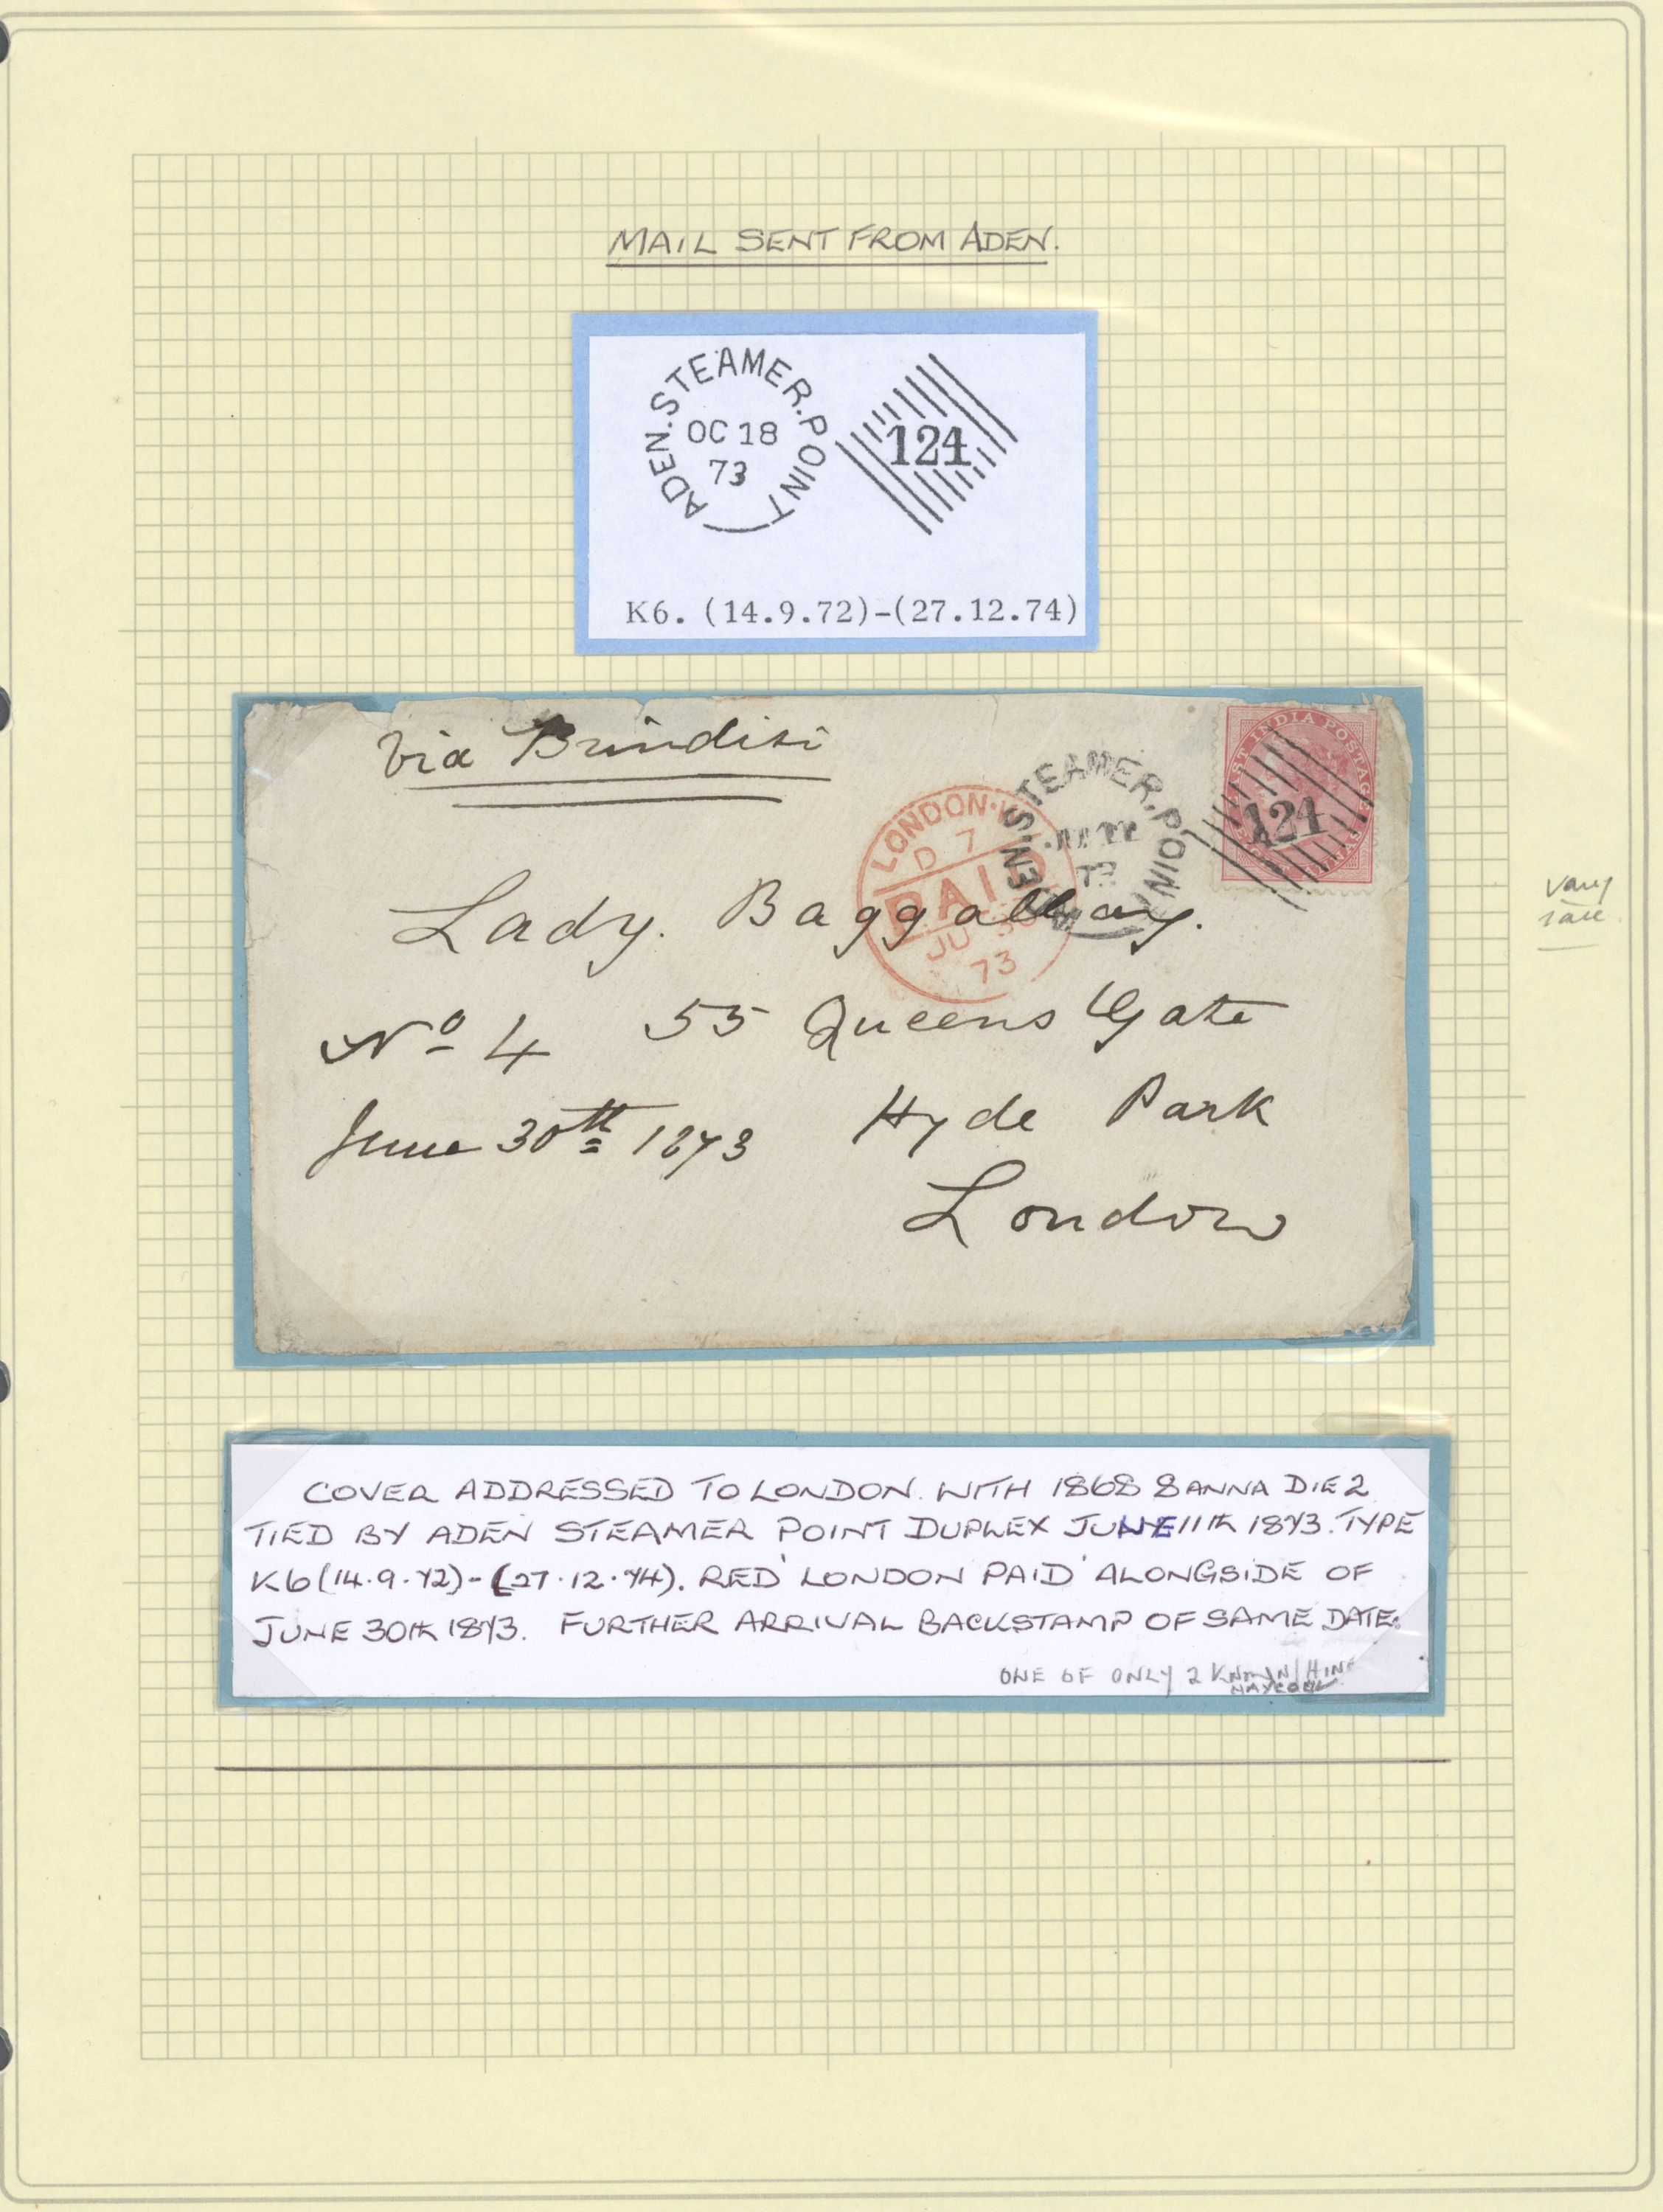 MAIL SENT FROM ADEN.
ADEN.STEAMER.POINT
OC 18
73
124
K6. (14.9.72)-(27.12.74)
Via Brindisi
EAST INDIA POSTAGE
124
STEAMER.POIN
LONDON.W
D 7
PAID
JU 30
73
Lady. Baggallay.
No 4 55 Queens Gate
June 30th 1873 Hyde Park
London
very
rare
COVER ADDRESSED TO LONDON. WITH 1868 8 ANNA DIE 2
TIED BY ADEN STEAMER POINT DUPLEX JUNE 11th 1873. TYPE
K6 (14.9.72)-(27.12.74). RED 'LONDON PAID' ALONGSIDE OF
JUNE 30th 1873. FURTHER ARRIVAL BACKSTAMP OF SAME DATE.
ONE OF ONLY 2 KNOWN